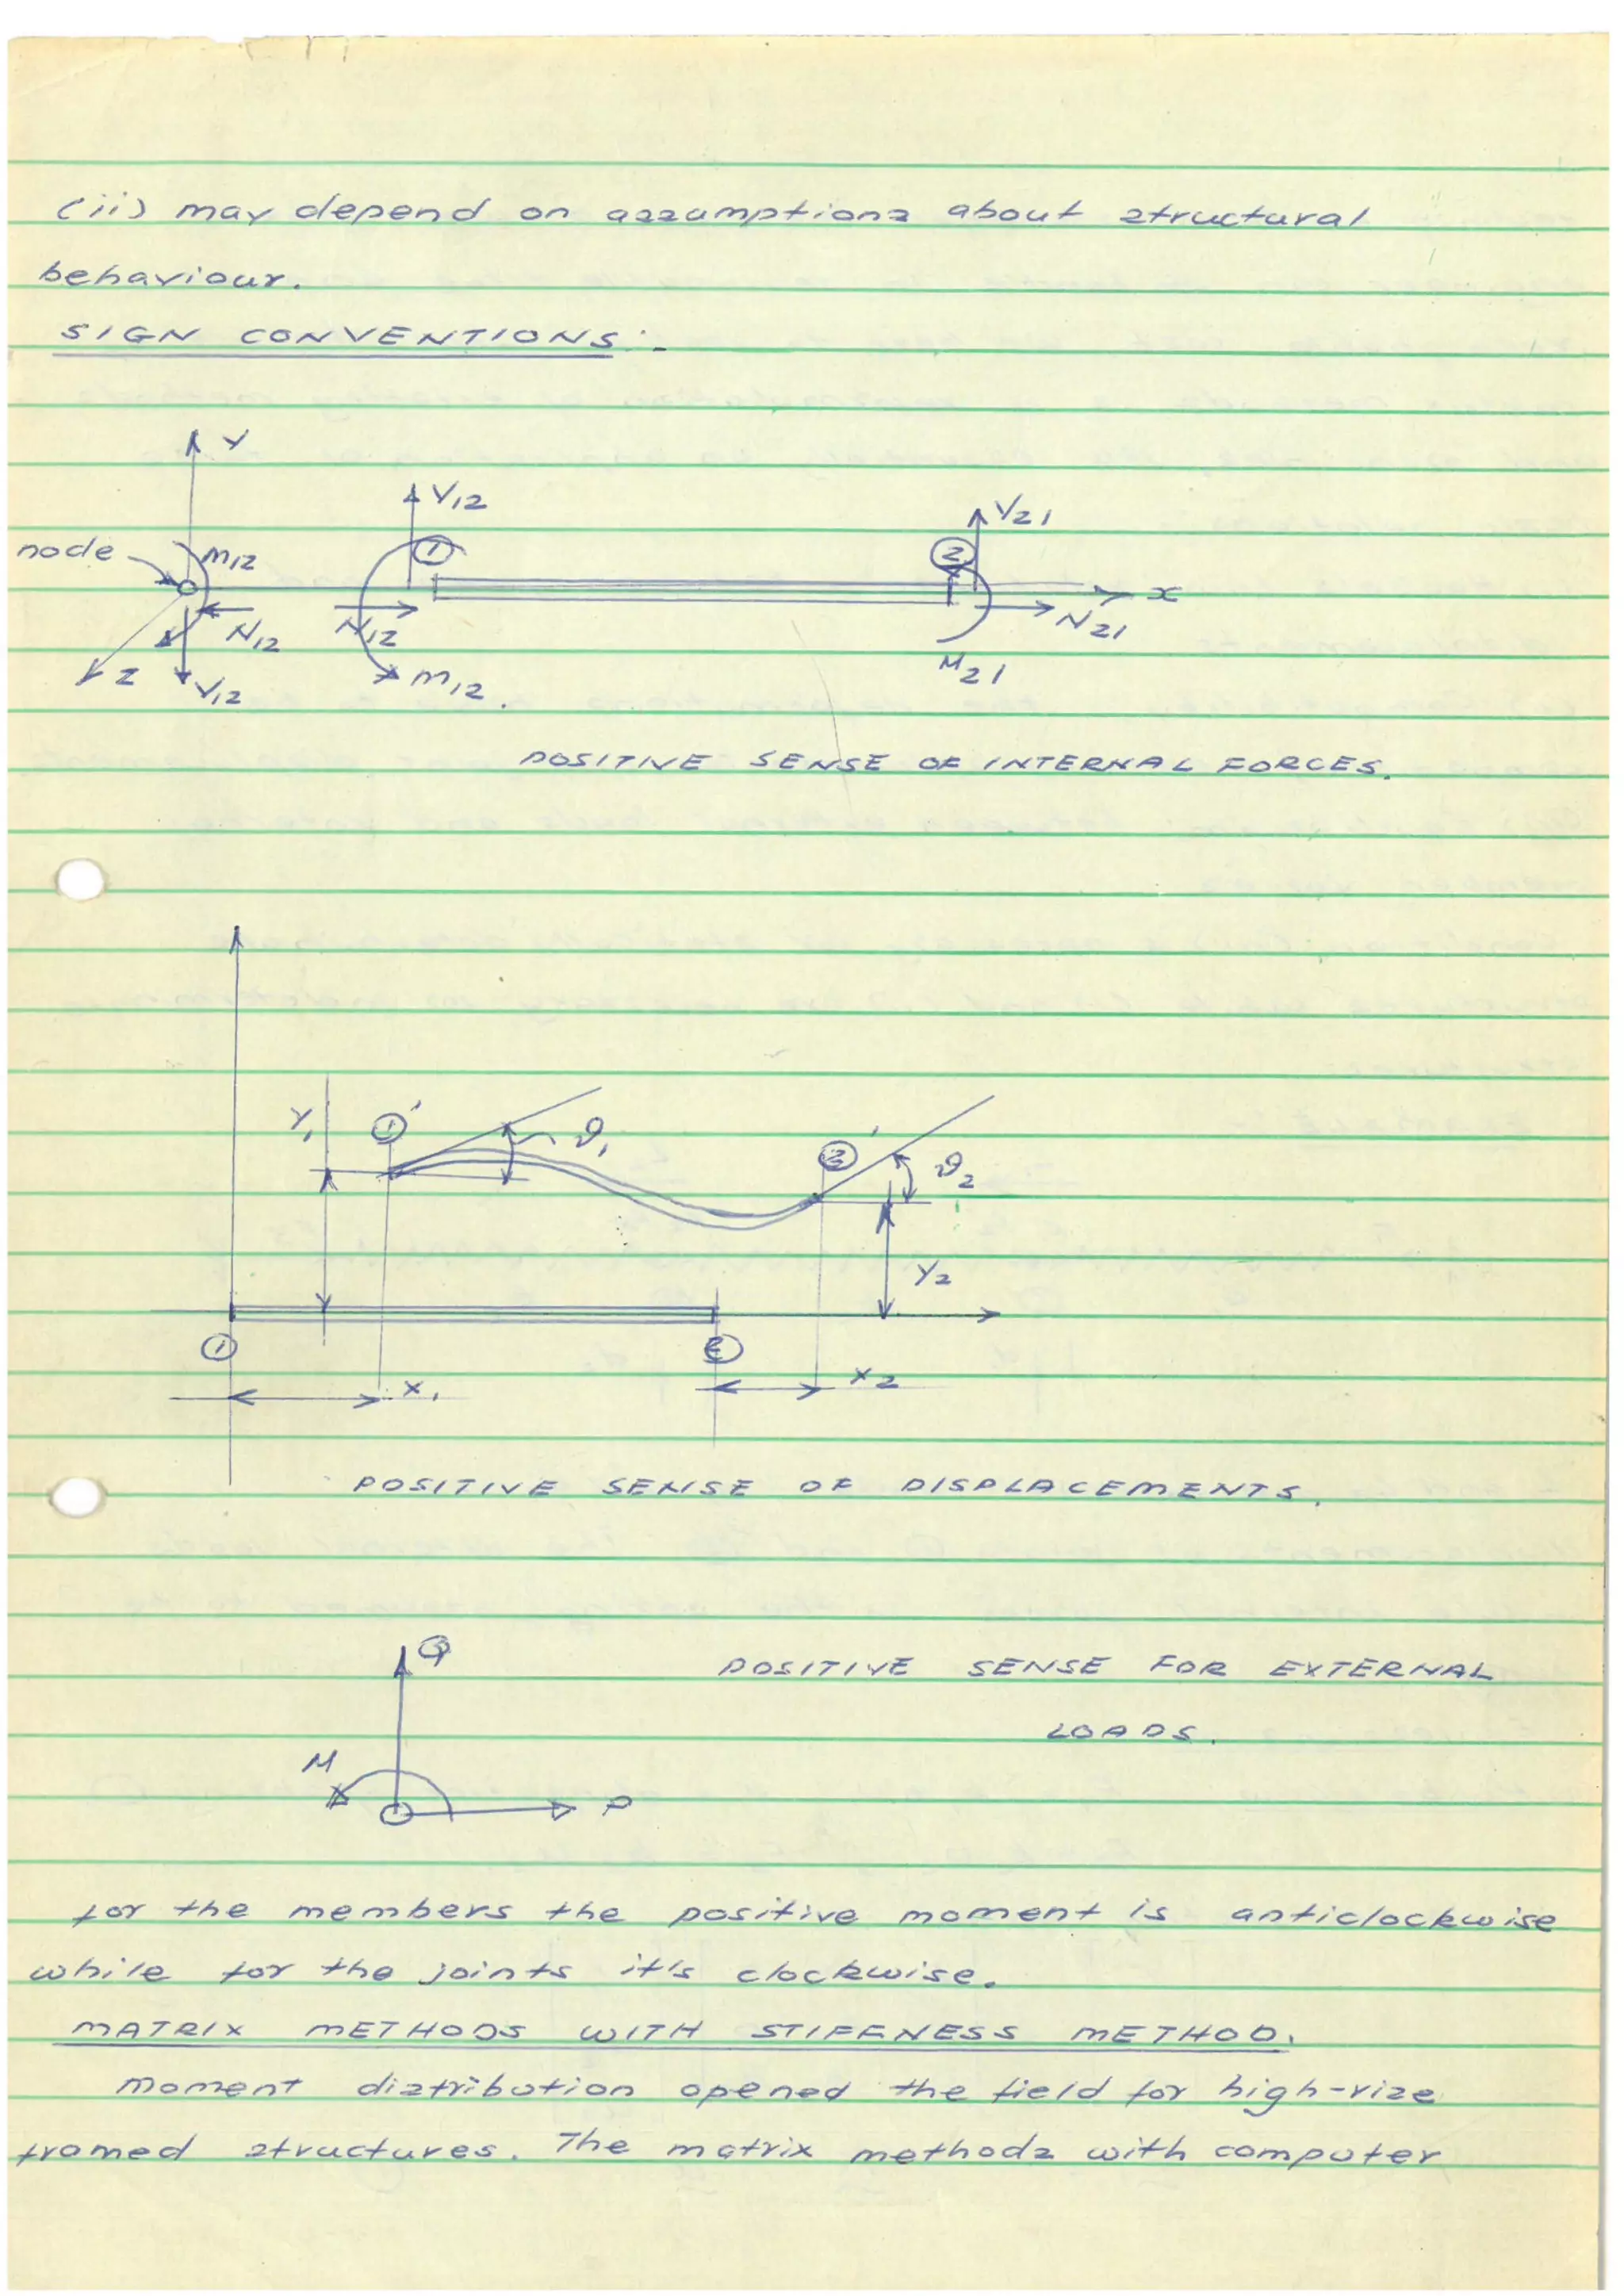 (ii) may depend on assumptions about structural
behaviour.
SIGN CONVENTIONS:-
Y
V12
V21
node
M12
1
2
x
N12
N12
N21
Z
V12
M12.
M21
POSITIVE SENSE OF INTERNAL FORCES.
Y1
1'
θ1
2'
θ2
Y2
1
2
x1
x2
POSITIVE SENSE OF DISPLACEMENTS.
Q
POSITIVE SENSE FOR EXTERNAL
LOADS.
M
P
for the members the positive moment is anticlockwise
while for the joints it's clockwise.
MATRIX METHODS WITH STIFFNESS METHOD.
Moment distribution opened the field for high-rize
framed structures. The matrix methods with computer